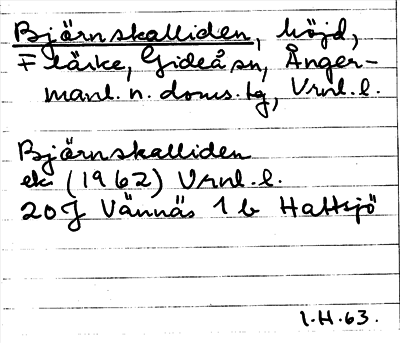 Björnskalliden, höjd,
Flärke, Gideå sn, Ånger-
manl. n. doms. tg, Vrnl. l.
Björnskalliden
ek. (1962) Vrnl. l.
20 J Vännäs 1 b Hattsjö
1.H.63.